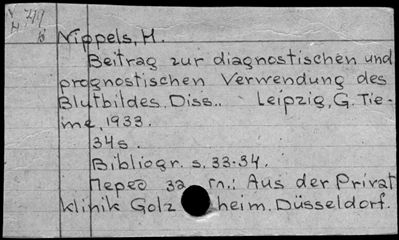 Nippels, H.
Beitrag zur diagnostischen und
prognostischen Verwendung des
Blutbildes. Diss.. Leipzig, G. Tie-
me, 1933.
34s.
Bibliogr. s. 33-34.
Перед за<г>л.: Aus der Privat
klinik Golz heim. Düsseldorf.